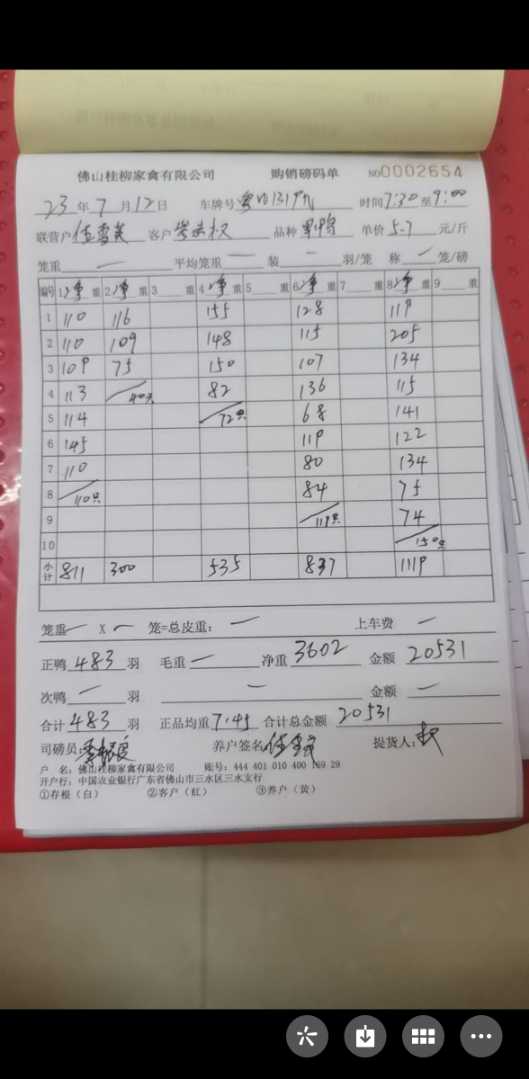 佛山桂柳家禽有限公司 购销磅码单 NO0002654
23年7月12日 车牌号 时间7:30至9:00
联营户 客户 品种 单价5.7元/斤
笼重— 平均笼重— 装—羽/笼 称—笼/磅
编号 1净重 2净重 3重 4净重 5重 6净重 7重 8净重 9重
1 110 116 155 128 119
2 110 109 148 115 205
3 109 75 150 107 134
4 113 40只 82 136 115
5 114 72只 68 141
6 145 119 122
7 110 80 134
8 110只 84 75
9 119只 74
10 150只
小计 811 300 535 837 1119
笼重— X — 笼=总皮重:— 上车费 —
正鸭483羽 毛重— 净重3602 金额20531
次鸭—羽 — 金额—
合计483羽 正品均重7.45 合计总金额20531
司磅员: 养户签名 提货人:
户 名:佛山桂柳家禽有限公司 账号:444 401 010 400 169 29
开户行:中国农业银行广东省佛山市三水区三水支行
①存根(白) ②客户(红) ③养户(黄)